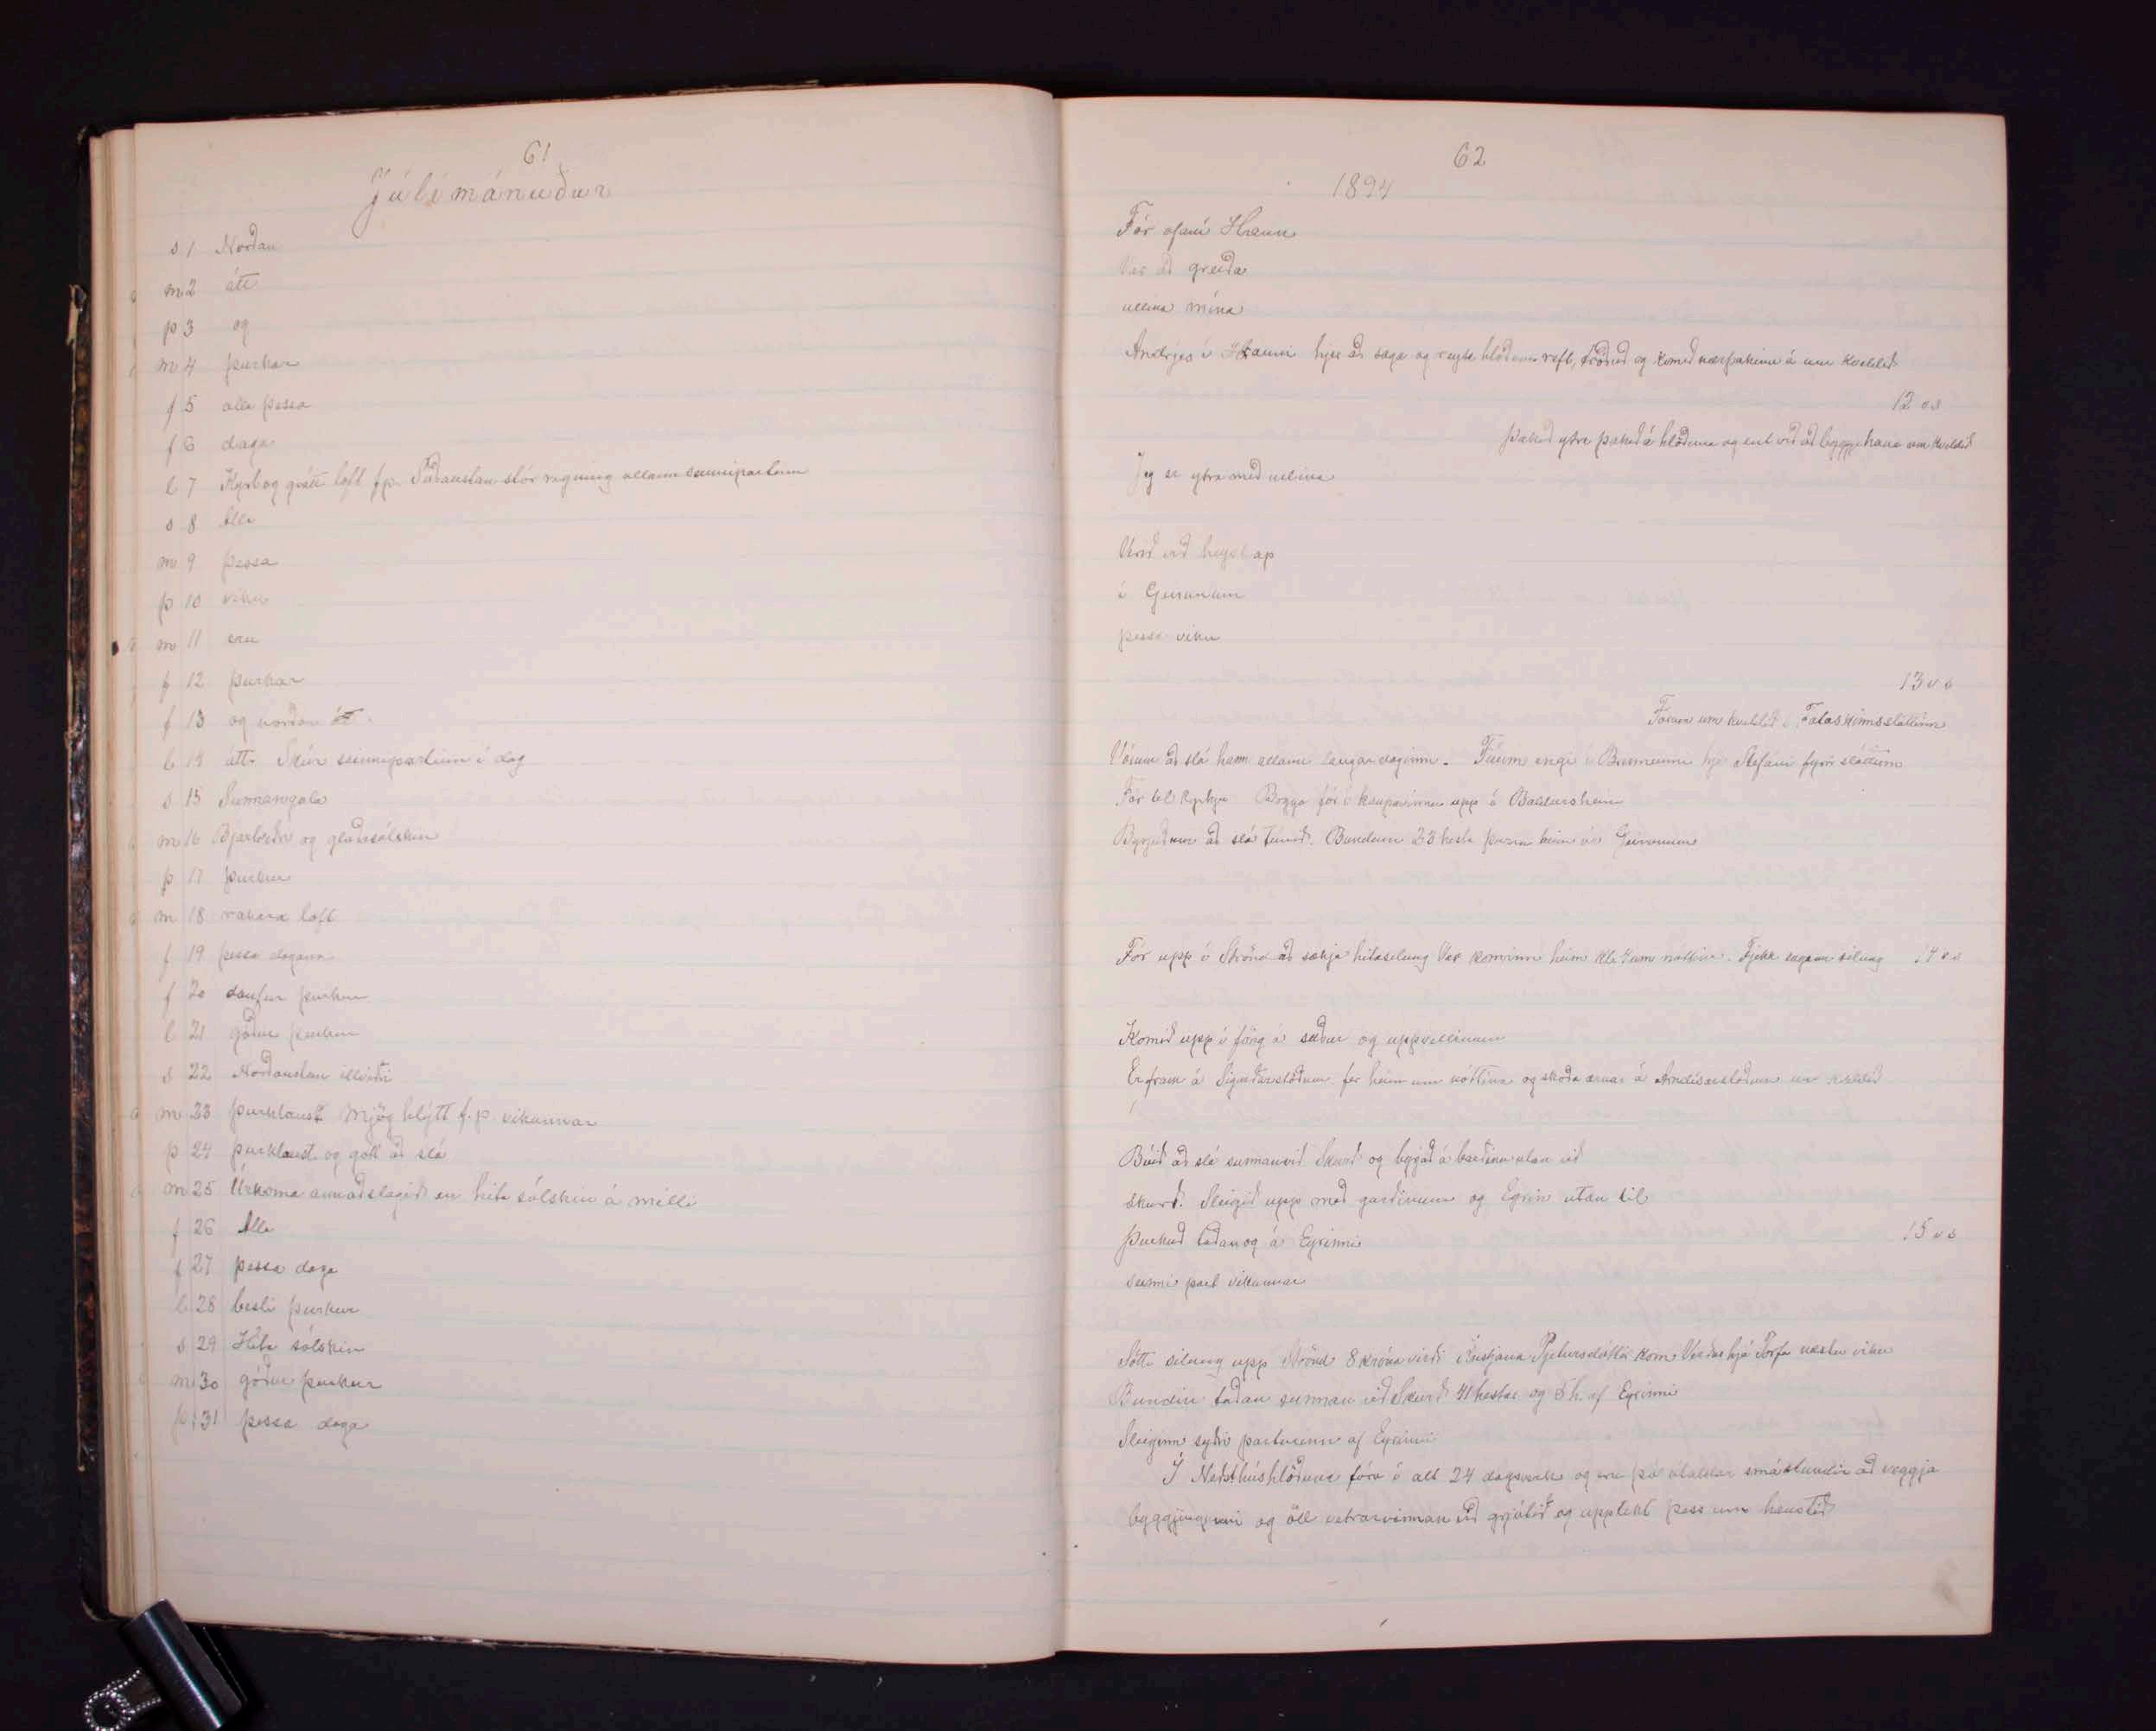 61
Júlímánuður
s 1 Norðan
m 2 átt
þ 3 og
m 4 þurkar
f 5 alla þessa
f 6 daga
l 7 Kyrt og grátt loft f.p. Suðaustan stór rigning allann seinnipartinn
s 8 Alla
m 9 þessa
þ 10 viku
m 11 eru
f 12 þurkar
f 13 og norðan átt
l 14 átt. Skúr seinnipartinn í dag
s 15 Sunnangola
m 16 Bjartviðri og glaðasólskin
þ 17 þurkur
m 18 rakara loft
f 19 þessa dagana
f 20 daufur þurkur
l 21 góður þurkur
s 22 Norðaustan illviðri
m 23 þurklaust Mjög hlýtt f.p. vikunnar
þ 24 þurklaust og gott að slá
m 25 Úrkoma annaðslagið en hita sólskin á milli
f 26 Alla
f 27 þessa daga
l 28 besti þurkur
s 29 Hita sólskin
m 30 góður þurkur
þ 31 þessa daga
62
1894
Fór ofaní Hraun
Var að greiða
ullina mína
Andrjes í Hrauni hjer að saga og reyta hlöðuna reft, tróðuð og komið nærþakinu á um kveldið
12 v s
Þakið ytra þakið á hlöðuna og ent við að byggja hana um kveldið
Jeg er ytra með ullina
Verið við heyskap
í Geirunum
þessa viku
13 v s
Fórum um kveldið í Fataskinnssláttinn
Vórum að slá hann allann laugardaginn. Fáum engi í Brunninni hjá Stefáni fyrir sláttinn
Fór til kyrkju Bogga fór í kaupavinnu upp í Baldursheim
Byrjuðum að slá túnið. Bundum 23 hesta þurra heim úr Geirunum
Fór upp í Strönd að sækja hitasilung Var kominn heim kl. 4 um nóttina. Fjekk engann silung 14 v s
Komið upp í föng á suður og uppvellinum
Er fram á Sigurðarstöðum fer heim um nóttina og skoða ærnar á Arndísarstöðum um kveldið
Búið að slá sunnanvið Skurð og byjað á barðinu utan við
skurð. Sleigið upp með garðinum og Eyrin utan til
Þurkuð taðan og á Eyrinni
15 v s
seinni part vikunnar
Sótti silung upp Strönd 8 króna virði Kristjana Pjetursdóttir kom Verður hjá Torfa næstu viku
Bundin taðan sunnan við Skurð 41 hestar og 5 h. af Eyrinni
Sleiginn syðri parturinn af Eyrinni
Í Neðsthúshlöðuna fóru í alt 24 dagsverk og eru þó ótaldar smástundir að veggja
byggjingunni og öll vetrarvinnan við grjótið og upptekt þess um haustið